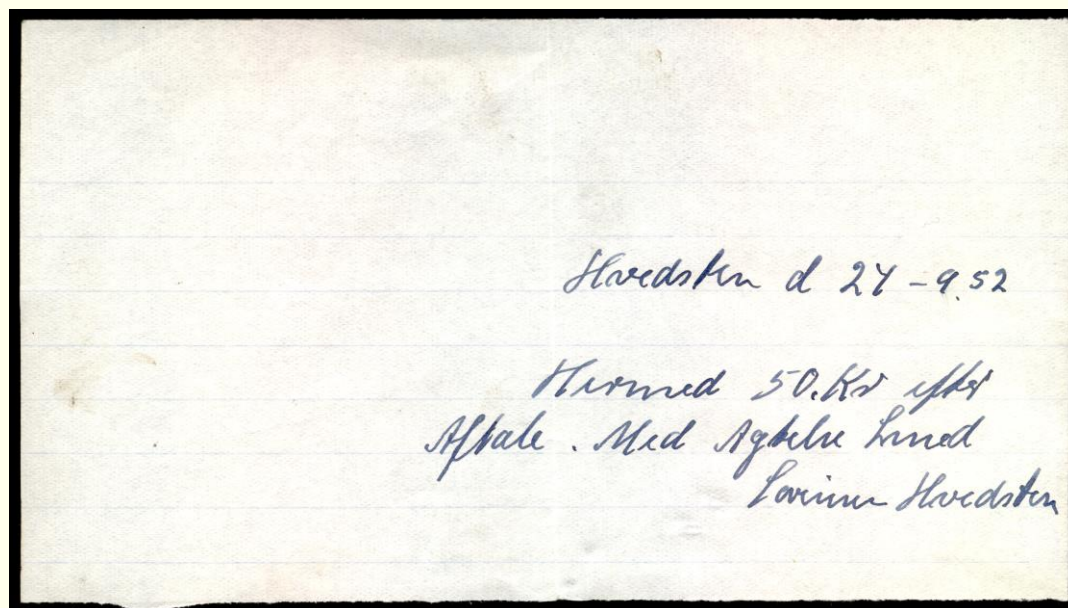 Hvedsten d 24 - 9.52
Hermed 50. Kr efter
Aftale . Med Agtelse Lund
Hvedsten